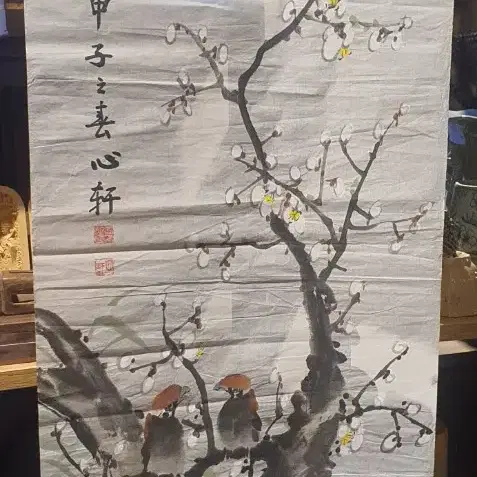 甲子之春心軒